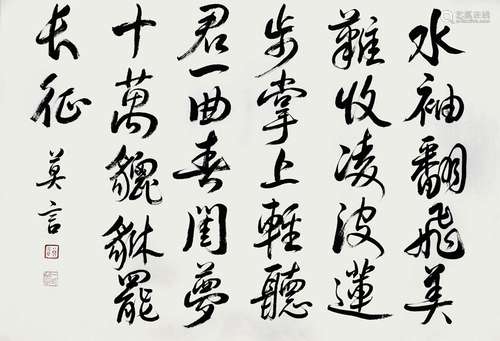 水袖翻飛美
難收凌波蓮
步掌上輕聽
君一曲春閨夢
十萬貔貅罷
長征
莫言